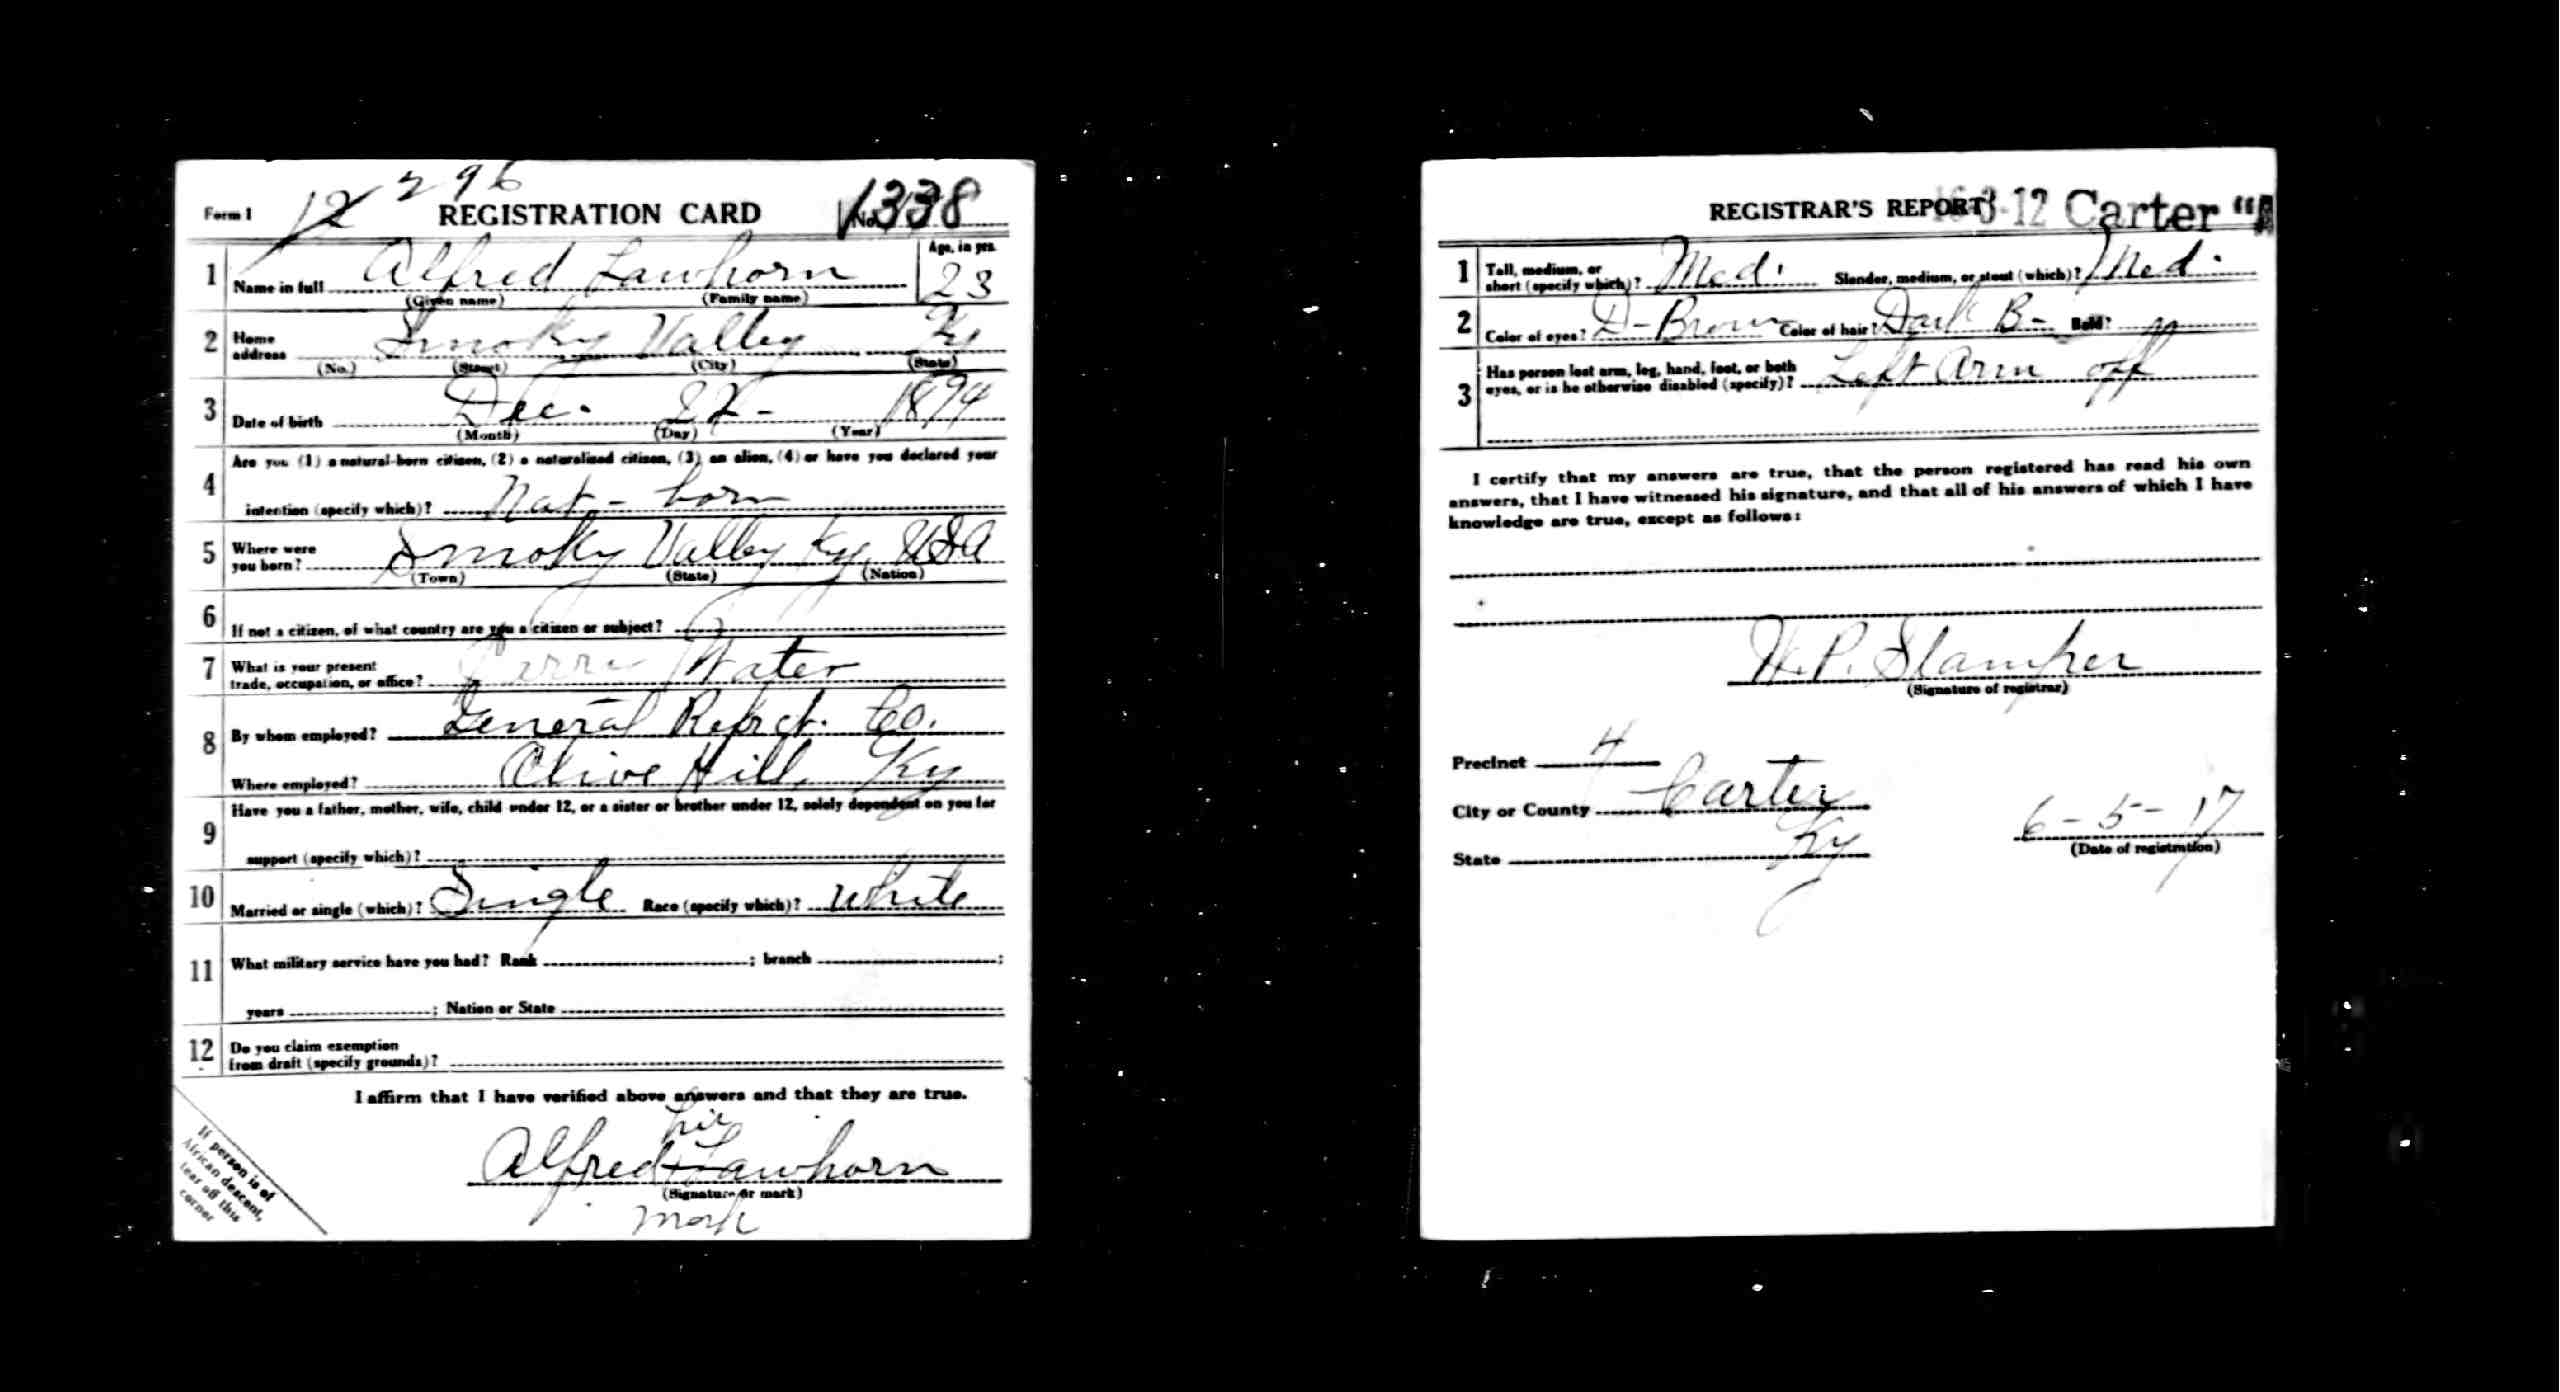 12 296
Form 1 REGISTRATION CARD No. 1338
1 Name in full Alfred Lawhorn Age, in yrs. 23
(Given name) (Family name)
2 Home address Smoky Valley Ky
(No.) (Street) (City) (State)
3 Date of birth Dec. 22 - 1894
(Month) (Day) (Year)
4 Are you (1) a natural-born citizen, (2) a naturalized citizen, (3) an alien, (4) or have you declared your
intention (specify which)? Nat - born
5 Where were you born? Smoky Valley Ky, USA
(Town) (State) (Nation)
6 If not a citizen, of what country are you a citizen or subject?
7 What is your present
trade, occupation, or office? Water
8 By whom employed? General Refrct. Co.
Where employed? Olive Hill, Ky
9 Have you a father, mother, wife, child under 12, or a sister or brother under 12, solely dependent on you for
support (specify which)?
10 Married or single (which)? Single Race (specify which)? White
11 What military service have you had? Rank ; branch ;
years ; Nation or State
12 Do you claim exemption
from draft (specify grounds)?
I affirm that I have verified above answers and that they are true.
his
Alfred + Lawhorn
(Signature or mark)
mark
If person is of
African descent,
tear off this
corner
REGISTRAR'S REPORT 16-3-12 Carter "A
1 Tall, medium, or
short (specify which)? Med. Slender, medium, or stout (which)? Med.
2 Color of eyes? D-Brown Color of hair? Dark B- Bald?
3 Has person lost arm, leg, hand, foot, or both
eyes, or is he otherwise disabled (specify)? Left Arm off
I certify that my answers are true, that the person registered has read his own
answers, that I have witnessed his signature, and that all of his answers of which I have
knowledge are true, except as follows:
H. P. Stamper
(Signature of registrar)
Precinct 4
City or County Carter
State Ky
6-5-17
(Date of registration)